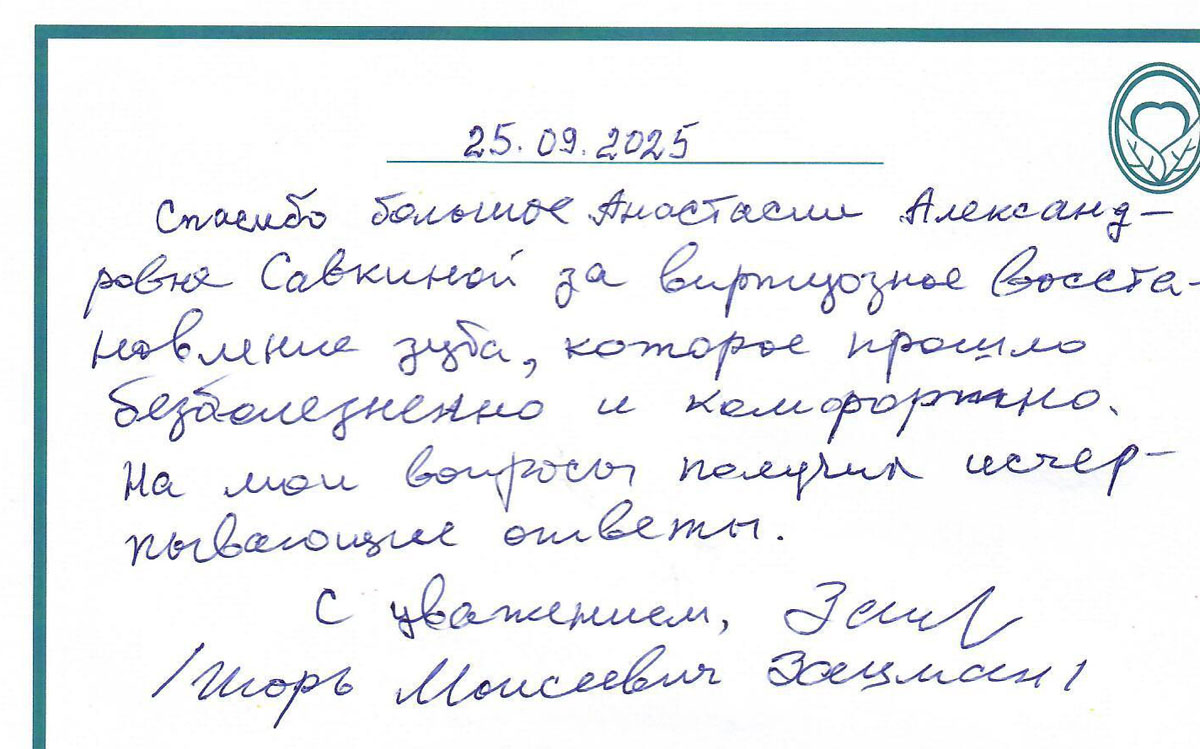 25.09.2025
Спасибо большое Анастасии Александ-
ровне Савкиной за виртуозное восста-
новление зуба, которое прошло
безболезненно и комфортно.
На мои вопросы получил исчер-
пывающие ответы.
С уважением,
/Игорь Моисеевич Зацман/